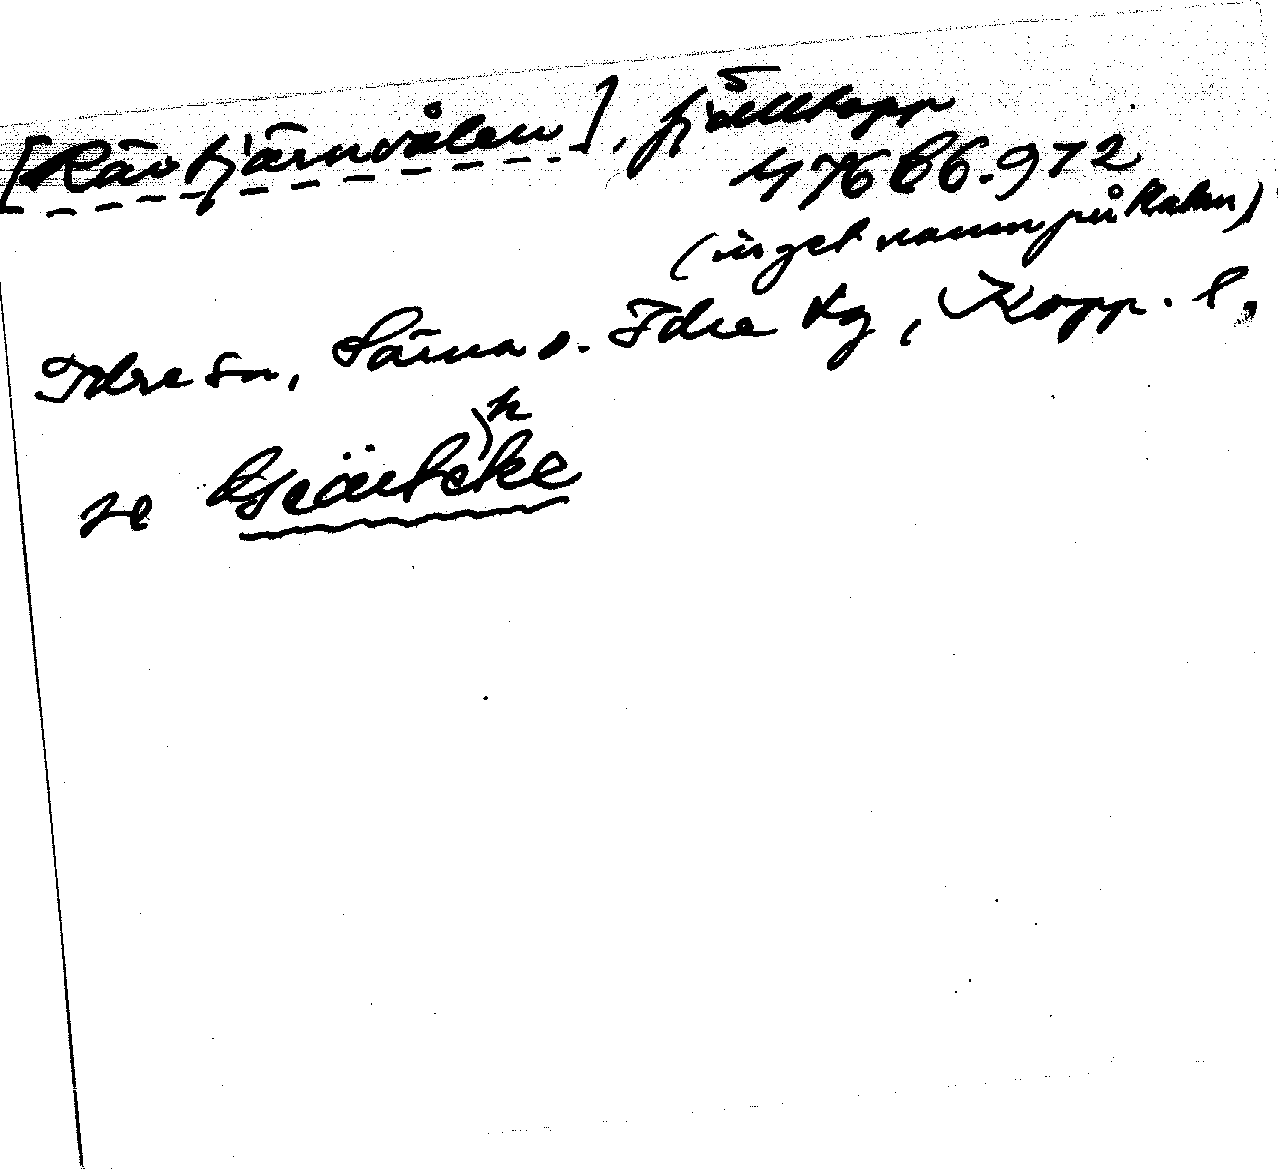 [Rävtjärnvålen], fjälltopp
47686.972
(inget namn på kartan)
Idre sn, Särna o. Idre tg, Kopp. l.
se